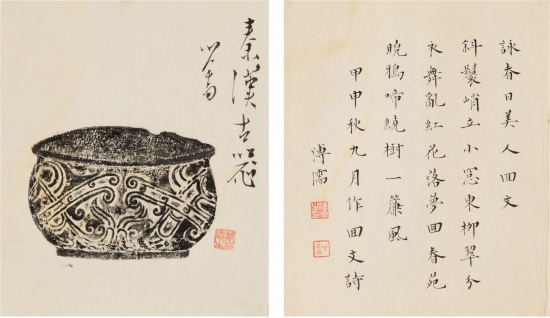 秦漢古器
心畬
詠春日美人回文
斜鬟峭立小窓東柳翠分
衣舞亂紅花落夢回春苑
曉鴉啼繞樹一簾風
甲申秋九月作回文詩
溥儒